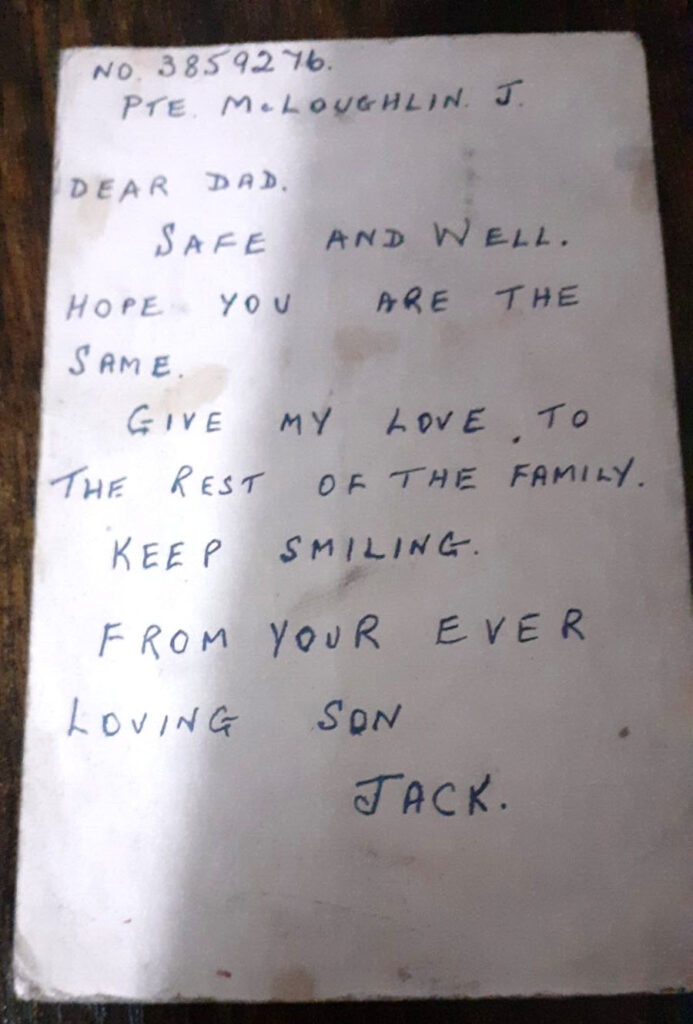 NO. 3859276.
PTE. McLOUGHLIN. J.
DEAR DAD.
SAFE AND WELL.
HOPE YOU ARE THE
SAME.
GIVE MY LOVE. TO
THE REST OF THE FAMILY.
KEEP SMILING.
FROM YOUR EVER
LOVING SON
JACK.